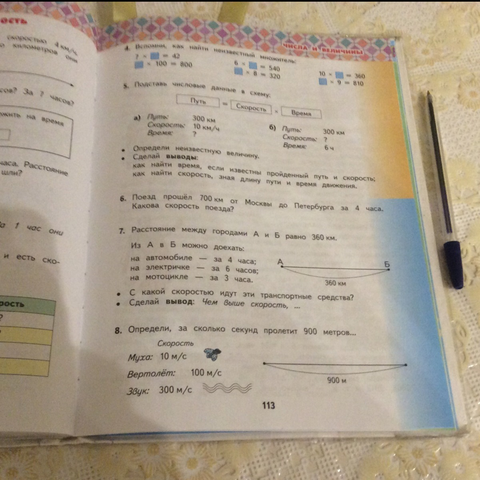 ость
скоростью 4 км/ч.
километров они
сов? За 7 часов?
ожить на время
часа. Расстояние
шли?
За 1 час они
и есть ско-
рость
?
ЧИСЛА И ВЕЛИЧИНЫ
4. Вспомни, как найти неизвестный множитель:
7 · = 42
6 · = 540
10 · = 360
· 100 = 800
· 8 = 320
· 9 = 810
5. Подставь числовые данные в схему:
Путь = Скорость · Время
а) Путь: 300 км
Скорость: 10 км/ч
Время: ?
б) Путь: 300 км
Скорость: ?
Время: 6 ч
• Определи неизвестную величину.
• Сделай выводы:
как найти время, если известны пройденный путь и скорость;
как найти скорость, зная длину пути и время движения.
6. Поезд прошёл 700 км от Москвы до Петербурга за 4 часа.
Какова скорость поезда?
7. Расстояние между городами А и Б равно 360 км.
Из А в Б можно доехать:
на автомобиле — за 4 часа;
на электричке — за 6 часов;
на мотоцикле — за 3 часа.
А Б
360 км
• С какой скоростью идут эти транспортные средства?
• Сделай вывод: Чем выше скорость, ...
8. Определи, за сколько секунд пролетит 900 метров...
Скорость
Муха: 10 м/с
Вертолёт: 100 м/с
Звук: 300 м/с
900 м
113